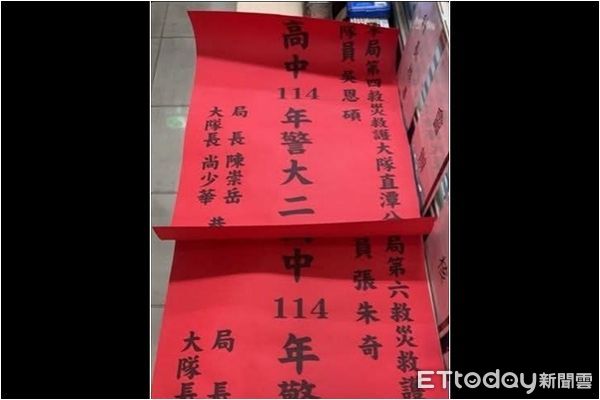 局第四救災救護大隊直潭
隊員 吳恩碩
高中114年警大二
局長 陳崇岳
大隊長 尚少華
局第六救災救護
員 張朱奇
中114年警
局長
大隊長
ETtoday新聞雲